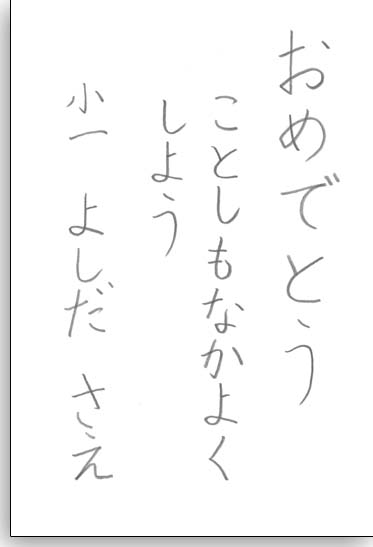 おめでとう
ことしもなかよく
しよう
小一 よしだ さえ